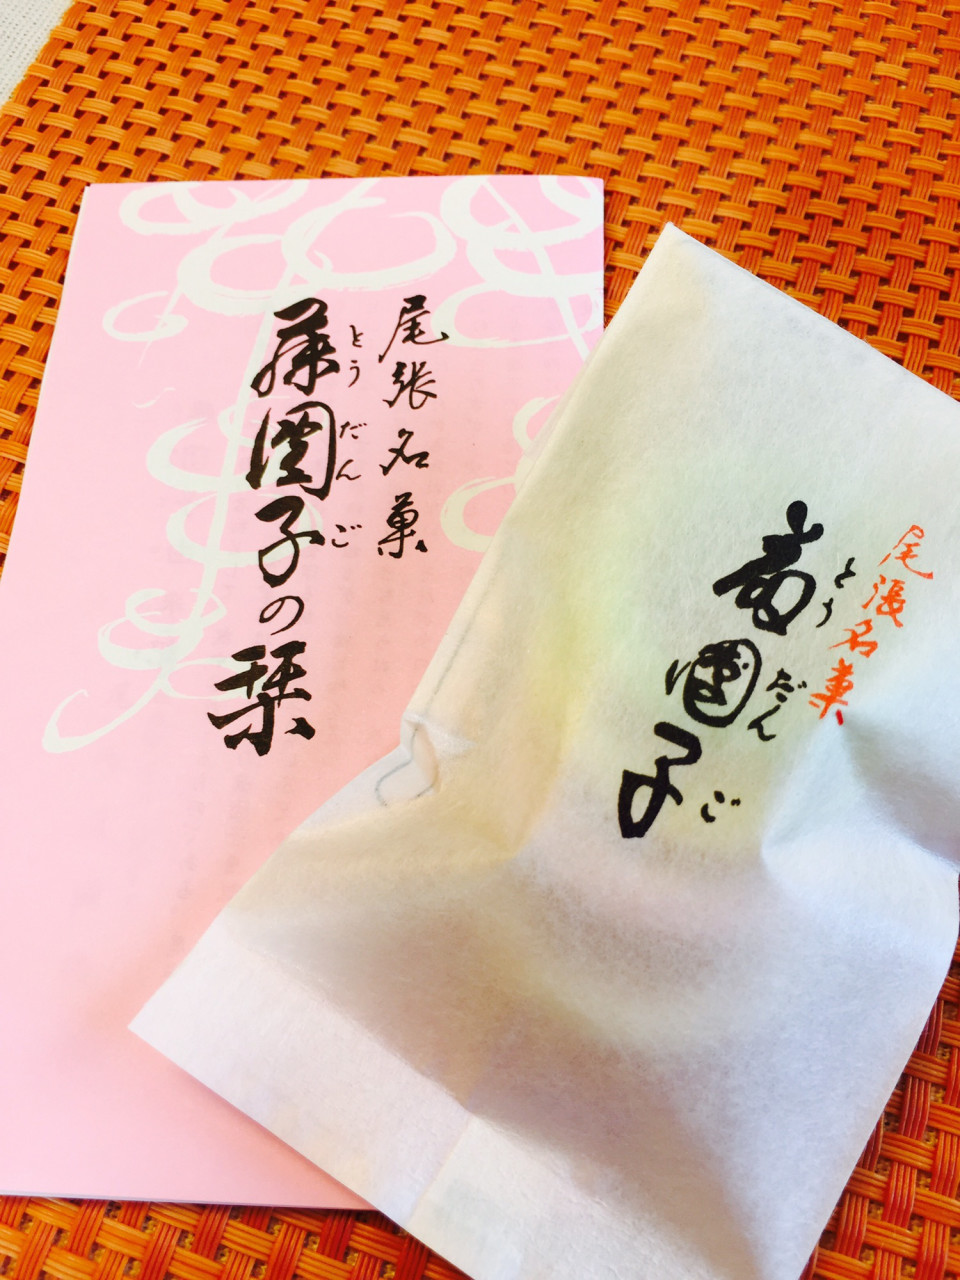 尾張名菓
藤團子の栞
とうだんご
尾張名菓
團子
とうだんご